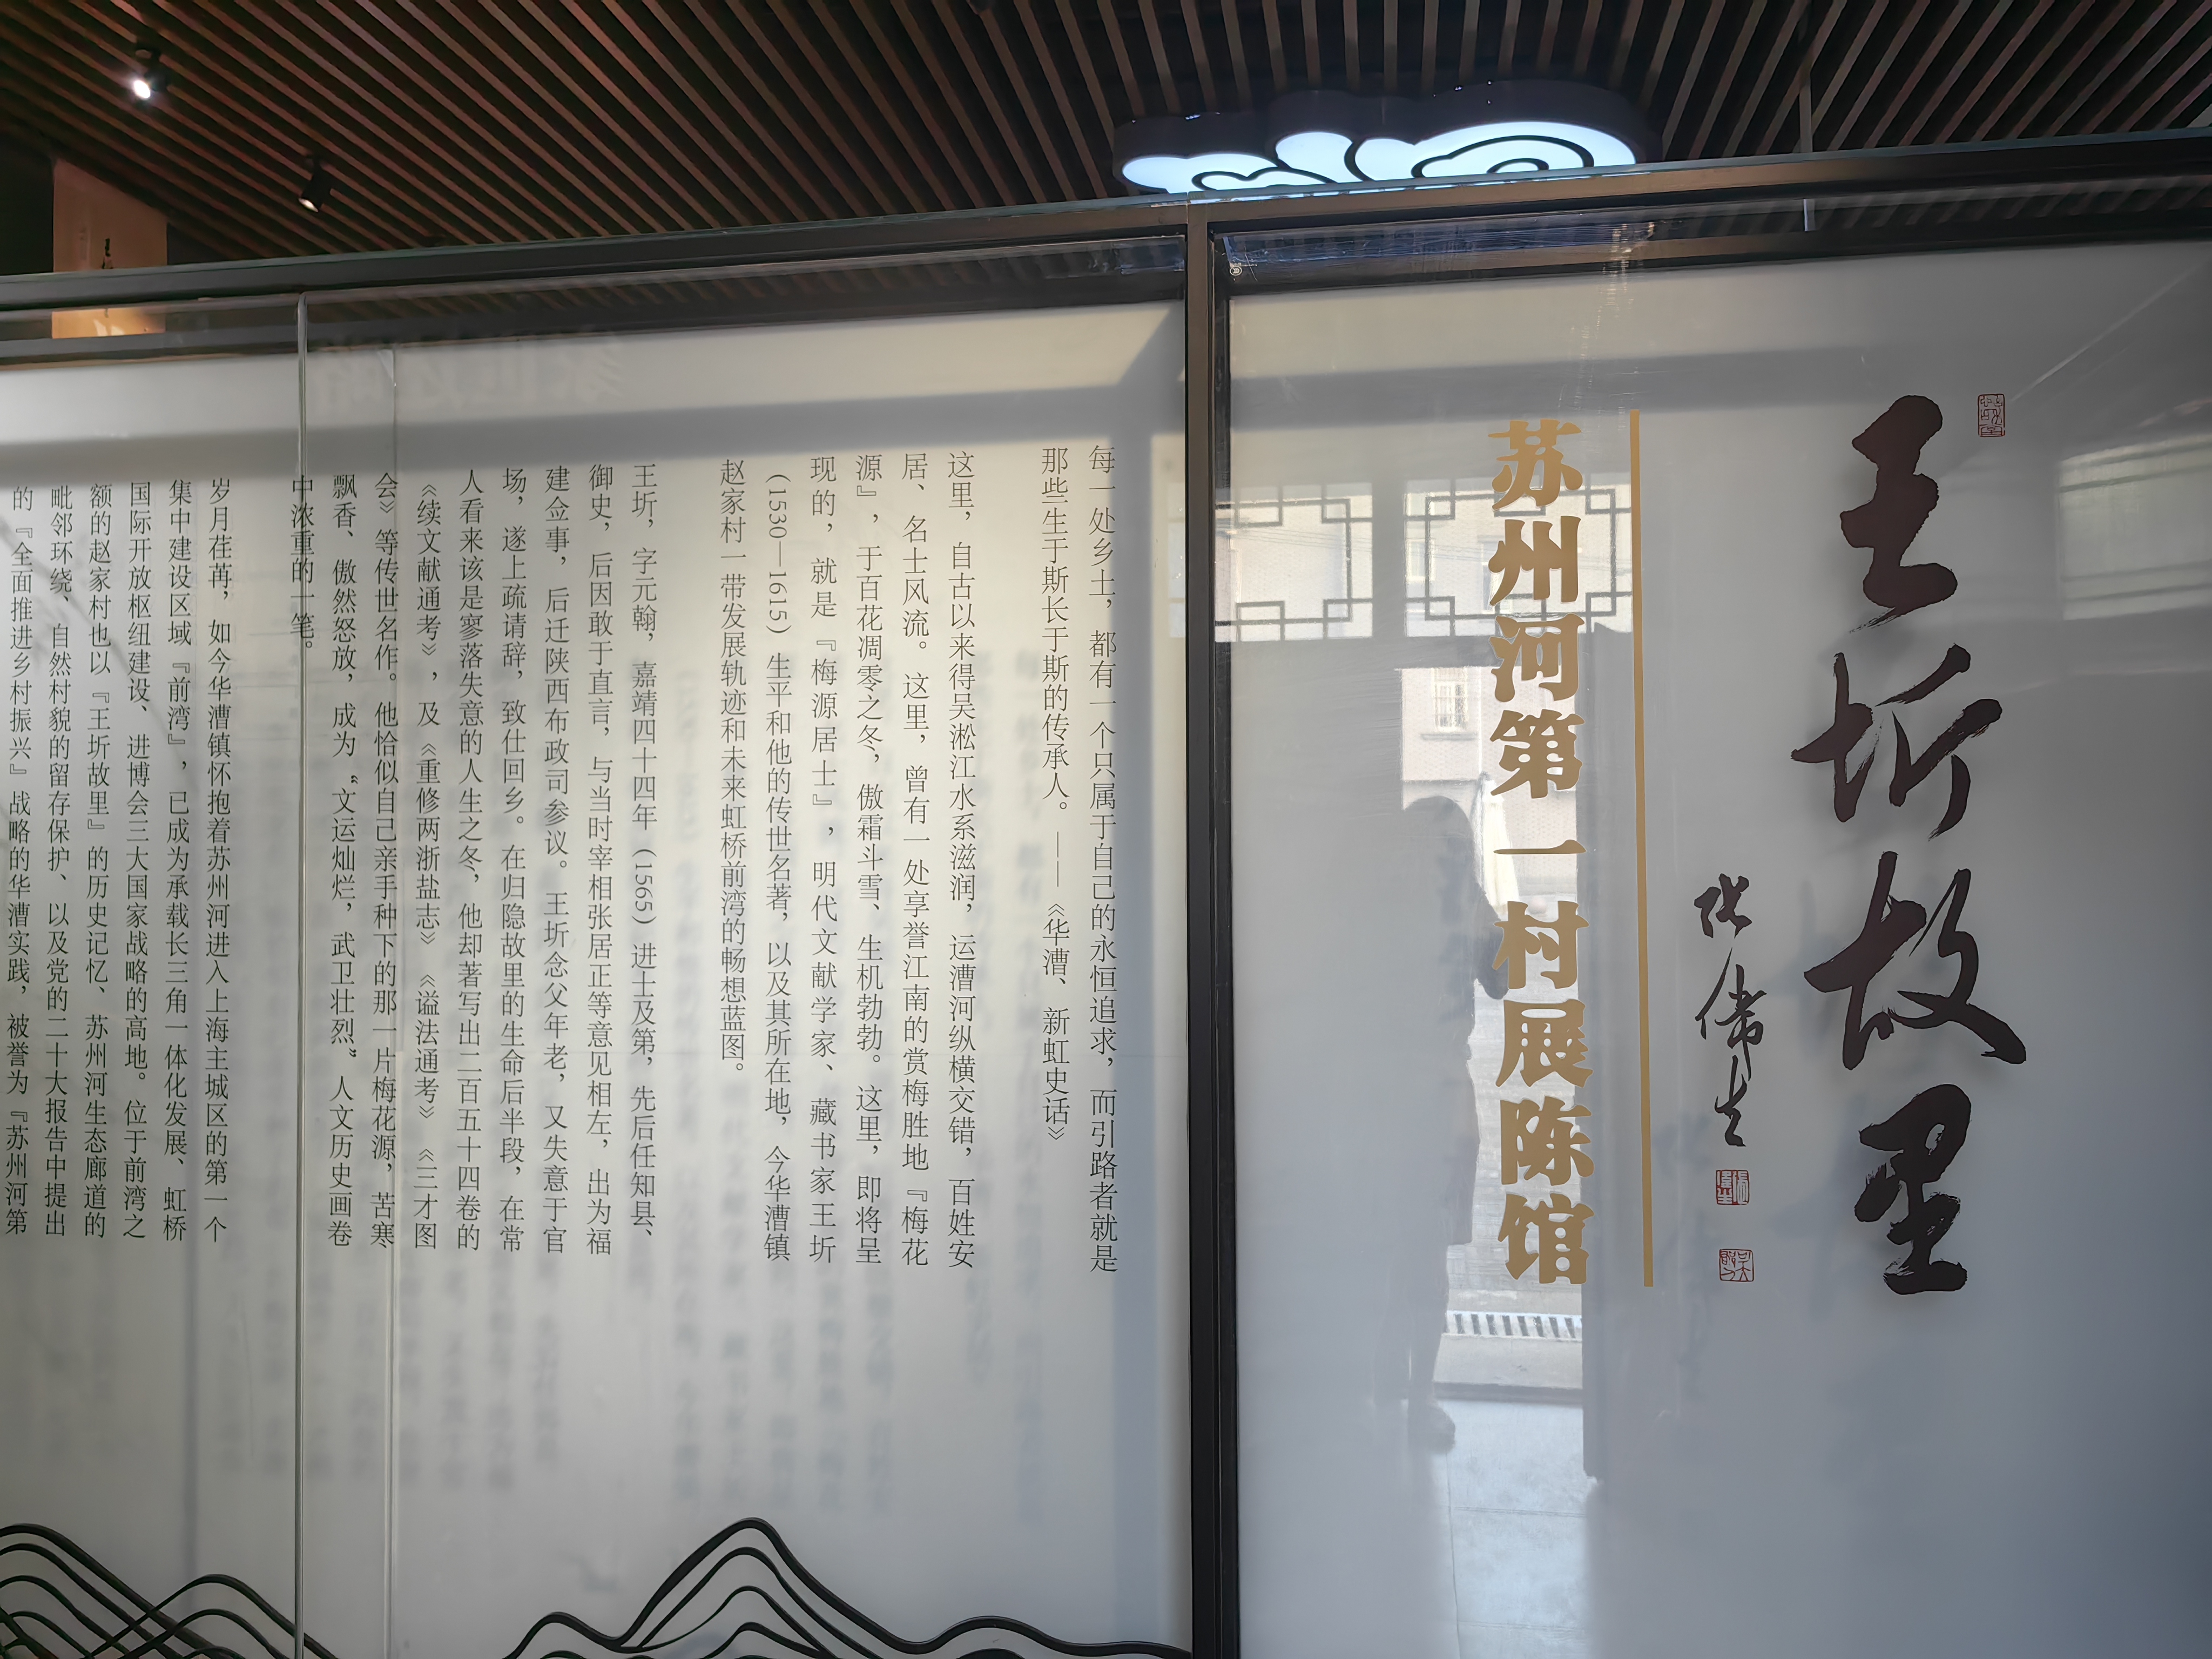 王圻故里
张伟生
苏州河第一村展陈馆
每一处乡土，都有一个只属于自己的永恒追求，而引路者就是
那些生于斯长于斯的传承人。——《华漕、新虹史话》
这里，自古以来得吴淞江水系滋润，运漕河纵横交错，百姓安
居、名士风流。这里，曾有一处享誉江南的赏梅胜地『梅花
源』，于百花凋零之冬，傲霜斗雪、生机勃勃。这里，即将呈
现的，就是『梅源居士』，明代文献学家、藏书家王圻
（1530—1615）生平和他的传世名著，以及其所在地，今华漕镇
赵家村一带发展轨迹和未来虹桥前湾的畅想蓝图。
王圻，字元翰，嘉靖四十四年（1565）进士及第，先后任知县、
御史，后因敢于直言，与当时宰相张居正等意见相左，出为福
建佥事，后迁陕西布政司参议。王圻念父年老，又失意于官
场，遂上疏请辞，致仕回乡。在归隐故里的生命后半段，在常
人看来该是寥落失意的人生之冬，他却著写出二百五十四卷的
《续文献通考》，及《重修两浙盐志》《谥法通考》《三才图
会》等传世名作。他恰似自己亲手种下的那一片梅花源，苦寒
飘香、傲然怒放，成为“文运灿烂，武卫壮烈”人文历史画卷
中浓重的一笔。
岁月荏苒，如今华漕镇怀抱着苏州河进入上海主城区的第一个
集中建设区域『前湾』，已成为承载长三角一体化发展、虹桥
国际开放枢纽建设、进博会三大国家战略的高地。位于前湾之
额的赵家村也以『王圻故里』的历史记忆、苏州河生态廊道的
毗邻环绕、自然村貌的留存保护、以及党的二十大报告中提出
的『全面推进乡村振兴』战略的华漕实践，被誉为『苏州河第